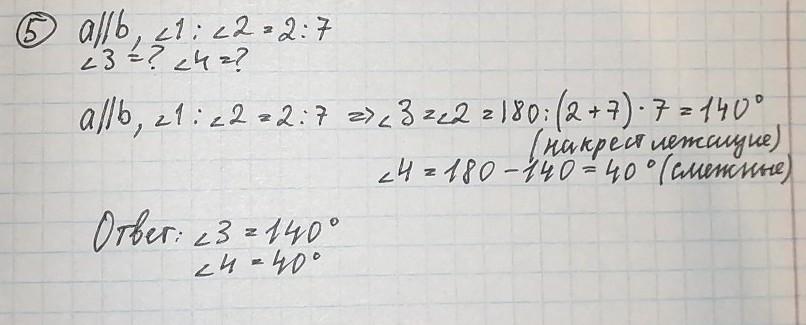 ⑤ a//b, ∠1 : ∠2 = 2 : 7
∠3 = ? ∠4 = ?
a//b, ∠1 : ∠2 = 2 : 7 => ∠3 = ∠2 = 180 : (2 + 7) · 7 = 140°
(накрест лежащие)
∠4 = 180 - 140 = 40° (смежные)
Ответ: ∠3 = 140°
∠4 = 40°